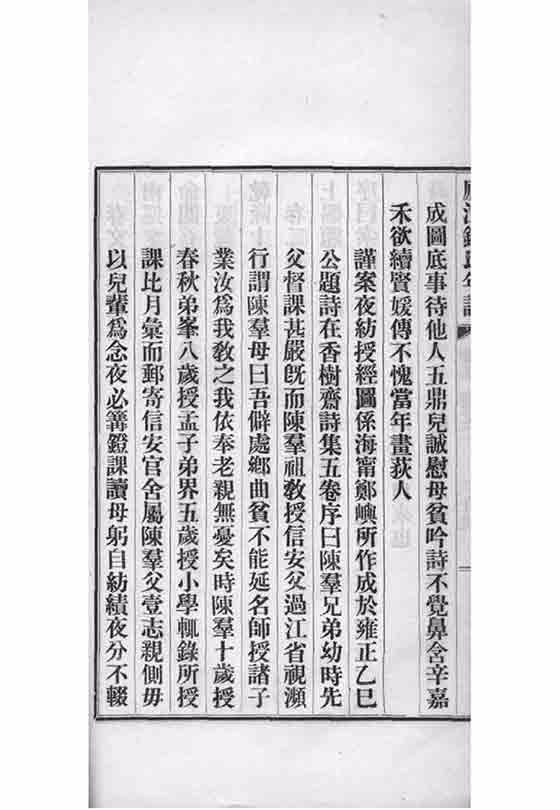 廬江錢氏年譜
成圖底事待他人五鼎兒誠慰母貧吟詩不覺鼻含辛嘉
禾欲續賢媛傳不愧當年畫荻人
謹案夜紡授經圖係海甯鄭嶼所作成於雍正乙巳
公題詩在香樹齋詩集五卷序曰陳羣兄弟幼時先
父督課甚嚴旣而陳羣祖敎授信安父過江省視瀕
行謂陳羣母曰吾僻處鄉曲貧不能延名師授諸子
業汝爲我敎之我依奉老親無憂矣時陳羣十歲授
春秋弟峯八歲授孟子弟界五歲授小學輒錄所授
課比月彙而郵寄信安官舍屬陳羣父壹志親側毋
以兒輩爲念夜必篝鐙課讀母躬自紡績夜分不輟